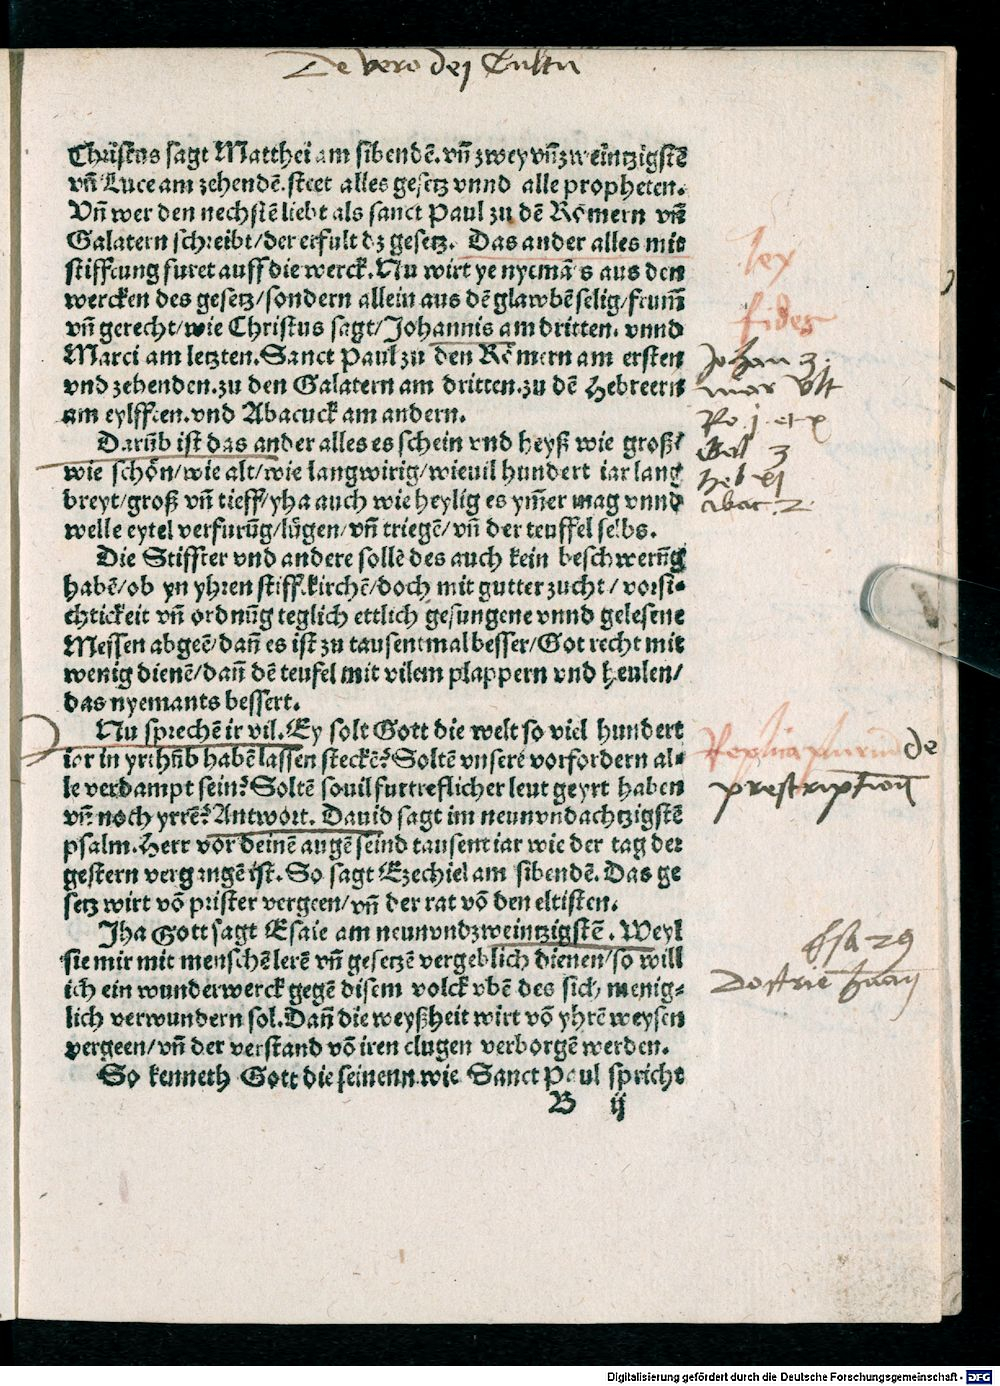 De vero dej Cultu
Christus sagt Matthei am sibendē. vñ zwey vñ zweintzigstē
vñ Luce am zehendē. steet alles gesetz vnnd alle propheten.
Vñ wer den nechstē liebt als sanct Paul zu dē Rōmern vñ
Galatern schreibt/der erfult dz gesetz. Das ander alles mit
stifftung furet auff die werck. Nu wirt ye nyemā s aus den
wercken des gesetz/sondern allein aus dē glawbē selig/frum̄
vñ gerecht/wie Christus sagt/Johannis am dritten. vnnd
Marci am letzten. Sanct Paul zu den Rō mern am ersten
vnd zehenden. zu den Galatern am dritten. zu dē Hebreern
am eylfften. vnd Abacuck am andern.
Darūb ist das ander alles es schein vnd heyß wie groß/
wie schön/wie alt/wie langwirig/wieuil hundert iar lang
breyt/groß vñ tieff/yha auch wie heylig es ym̄er mag vnnd
welle eytel verfurūg/lügen/vñ triegē/vñ der teuffel selbs.
Die Stiffter vnd andere sollē des auch kein beschwerūg
habē/ob yn yhren stifft kirchē/doch mit gutter zucht/vorsi-
chtickeit vñ ordnūg teglich ettlich gesungene vnnd gelesene
Messen abgeē/dañ es ist zu tausentmal besser/Got recht mit
wenig dienē/dañ dē teufel mit vilem plappern vnd heulen/
das nyemants bessert.
Nu sprechē ir vil. Ey solt Gott die welt so viel hundert
iar in yrthūb habē lassen steckē? Soltē vnsere vorfordern al-
le verdampt sein? Soltē souil furtreflicher leut geyrt haben
vñ noch yrrē? Antwort. Dauid sagt im neunvndachtzigstē
psalm. Herr vor deinē augē seind tausent iar wie der tag der
gestern vergangē ist. So sagt Ezechiel am sibendē. Das ge
setz wirt vō prister vergeen/vñ der rat vō den eltisten.
Jha Gott sagt Esaie am neunvndzweintzigstē. Weyl
sie mir mit menschē lerē vñ gesetzē vergeblich dienen/so will
ich ein wunderwerck gegē disem volck vbē des sich menig-
lich verwundern sol. Dañ die weyßheit wirt vō yhrē weysen
vergeen/vñ der verstand vō iren clugen verborgē werden.
So kenneth Gott die seinenn. wie Sanct Paul spricht
B ij
lex
fides
Johan 3.
mar vlt
Ro. j. et x
Gal 3
heb xj
abac. 2.
Replica plurium de
prescriptione
Esa 29